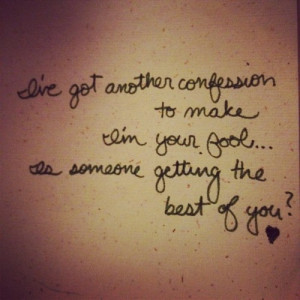 I've got another confession
to make
I'm your fool...
Is someone getting the
best of you?